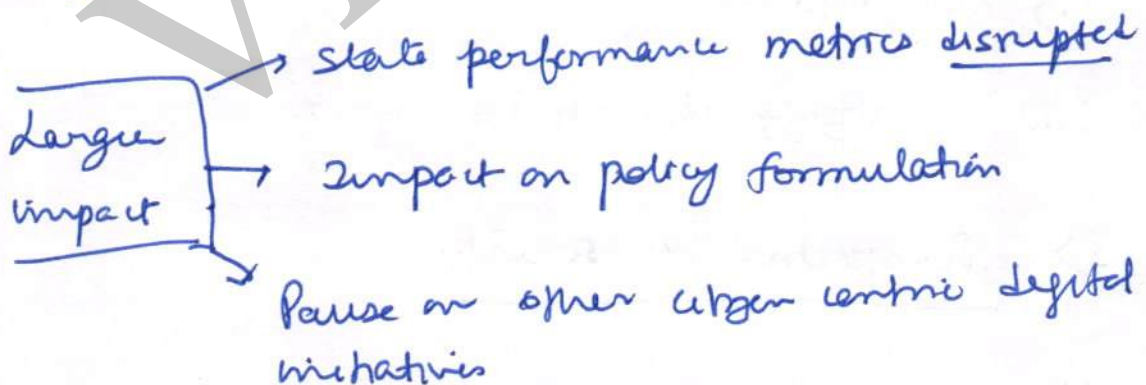 Larger
impact
→ State performance metrics disrupted
→ Impact on policy formulation
→ Pause on other citizen centric digital
initiatives